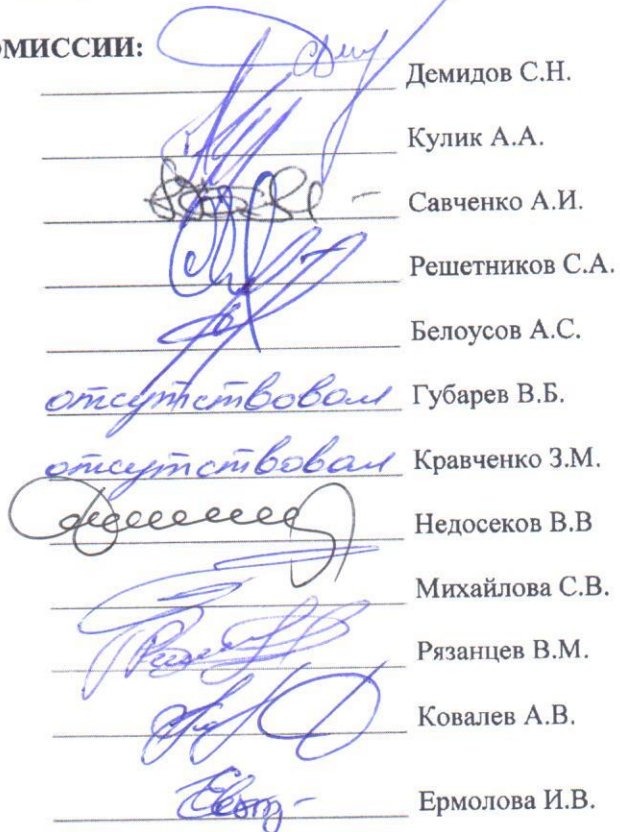 ОМИССИИ:
Демидов С.Н.
Кулик А.А.
Савченко А.И.
Решетников С.А.
Белоусов А.С.
отсутствовал Губарев В.Б.
отсутствовал Кравченко З.М.
Недосеков В.В
Михайлова С.В.
Рязанцев В.М.
Ковалев А.В.
Ермолова И.В.